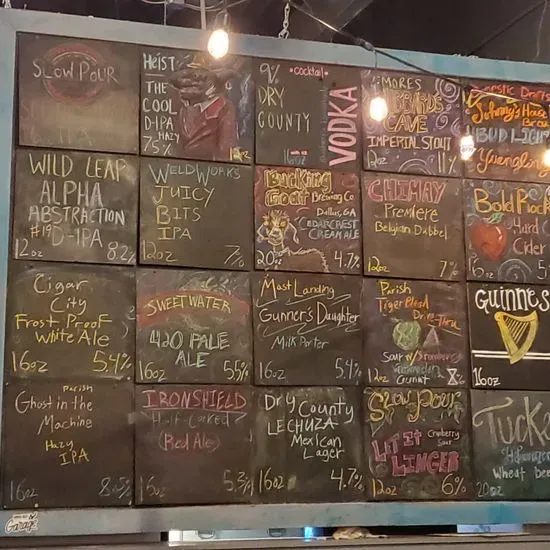 SLOW POUR
Heist
THE
COOL
D-IPA
HAZY
7.5%
12oz
9% *cocktail*
DRY
COUNTY
VODKA
16oz
S'MORES
CAVE
IMPERIAL STOUT
12oz 11%
Domestic Drafts
Johnny's House
BUD LIGHT
Yuengling
WILD LEAP
ALPHA
ABSTRACTION
#19 D-IPA
12oz 8.2%
WELDWORKS
JUICY
BITS
IPA
12oz 7%
Bucking
Goat Brewing Co.
Dallas, GA
CEDARCREST
CREAM ALE
20oz 4.7%
CHIMAY
Premiere
Belgian Dubbel
12oz 7%
Bold Rock
Hard
Cider
16oz 5
Cigar
City
Frost Proof
White Ale
16oz 5.4%
SWEETWATER
420 PALE
ALE
16oz 5.5%
Mast Landing
Gunner's Daughter
Milk Porter
16oz 5.4%
Parish
Tiger Blood Drive-Thru
Sour w/ Strawberry
Watermelon
Coconut
12oz 8%
GUINNES
16oz
Parish
Ghost in the
Machine
Hazy
IPA
16oz 8.5%
IRONSHIELD
Half-Cocked
(Red Ale)
16oz 5.3%
Dry County
LECHUZA
Mexican
Lager
16oz 4.7%
Slow Pour
LET IT Cranberry
Sour
LINGER
12oz 6%
Tucke
Wheat bee
20oz
Garage